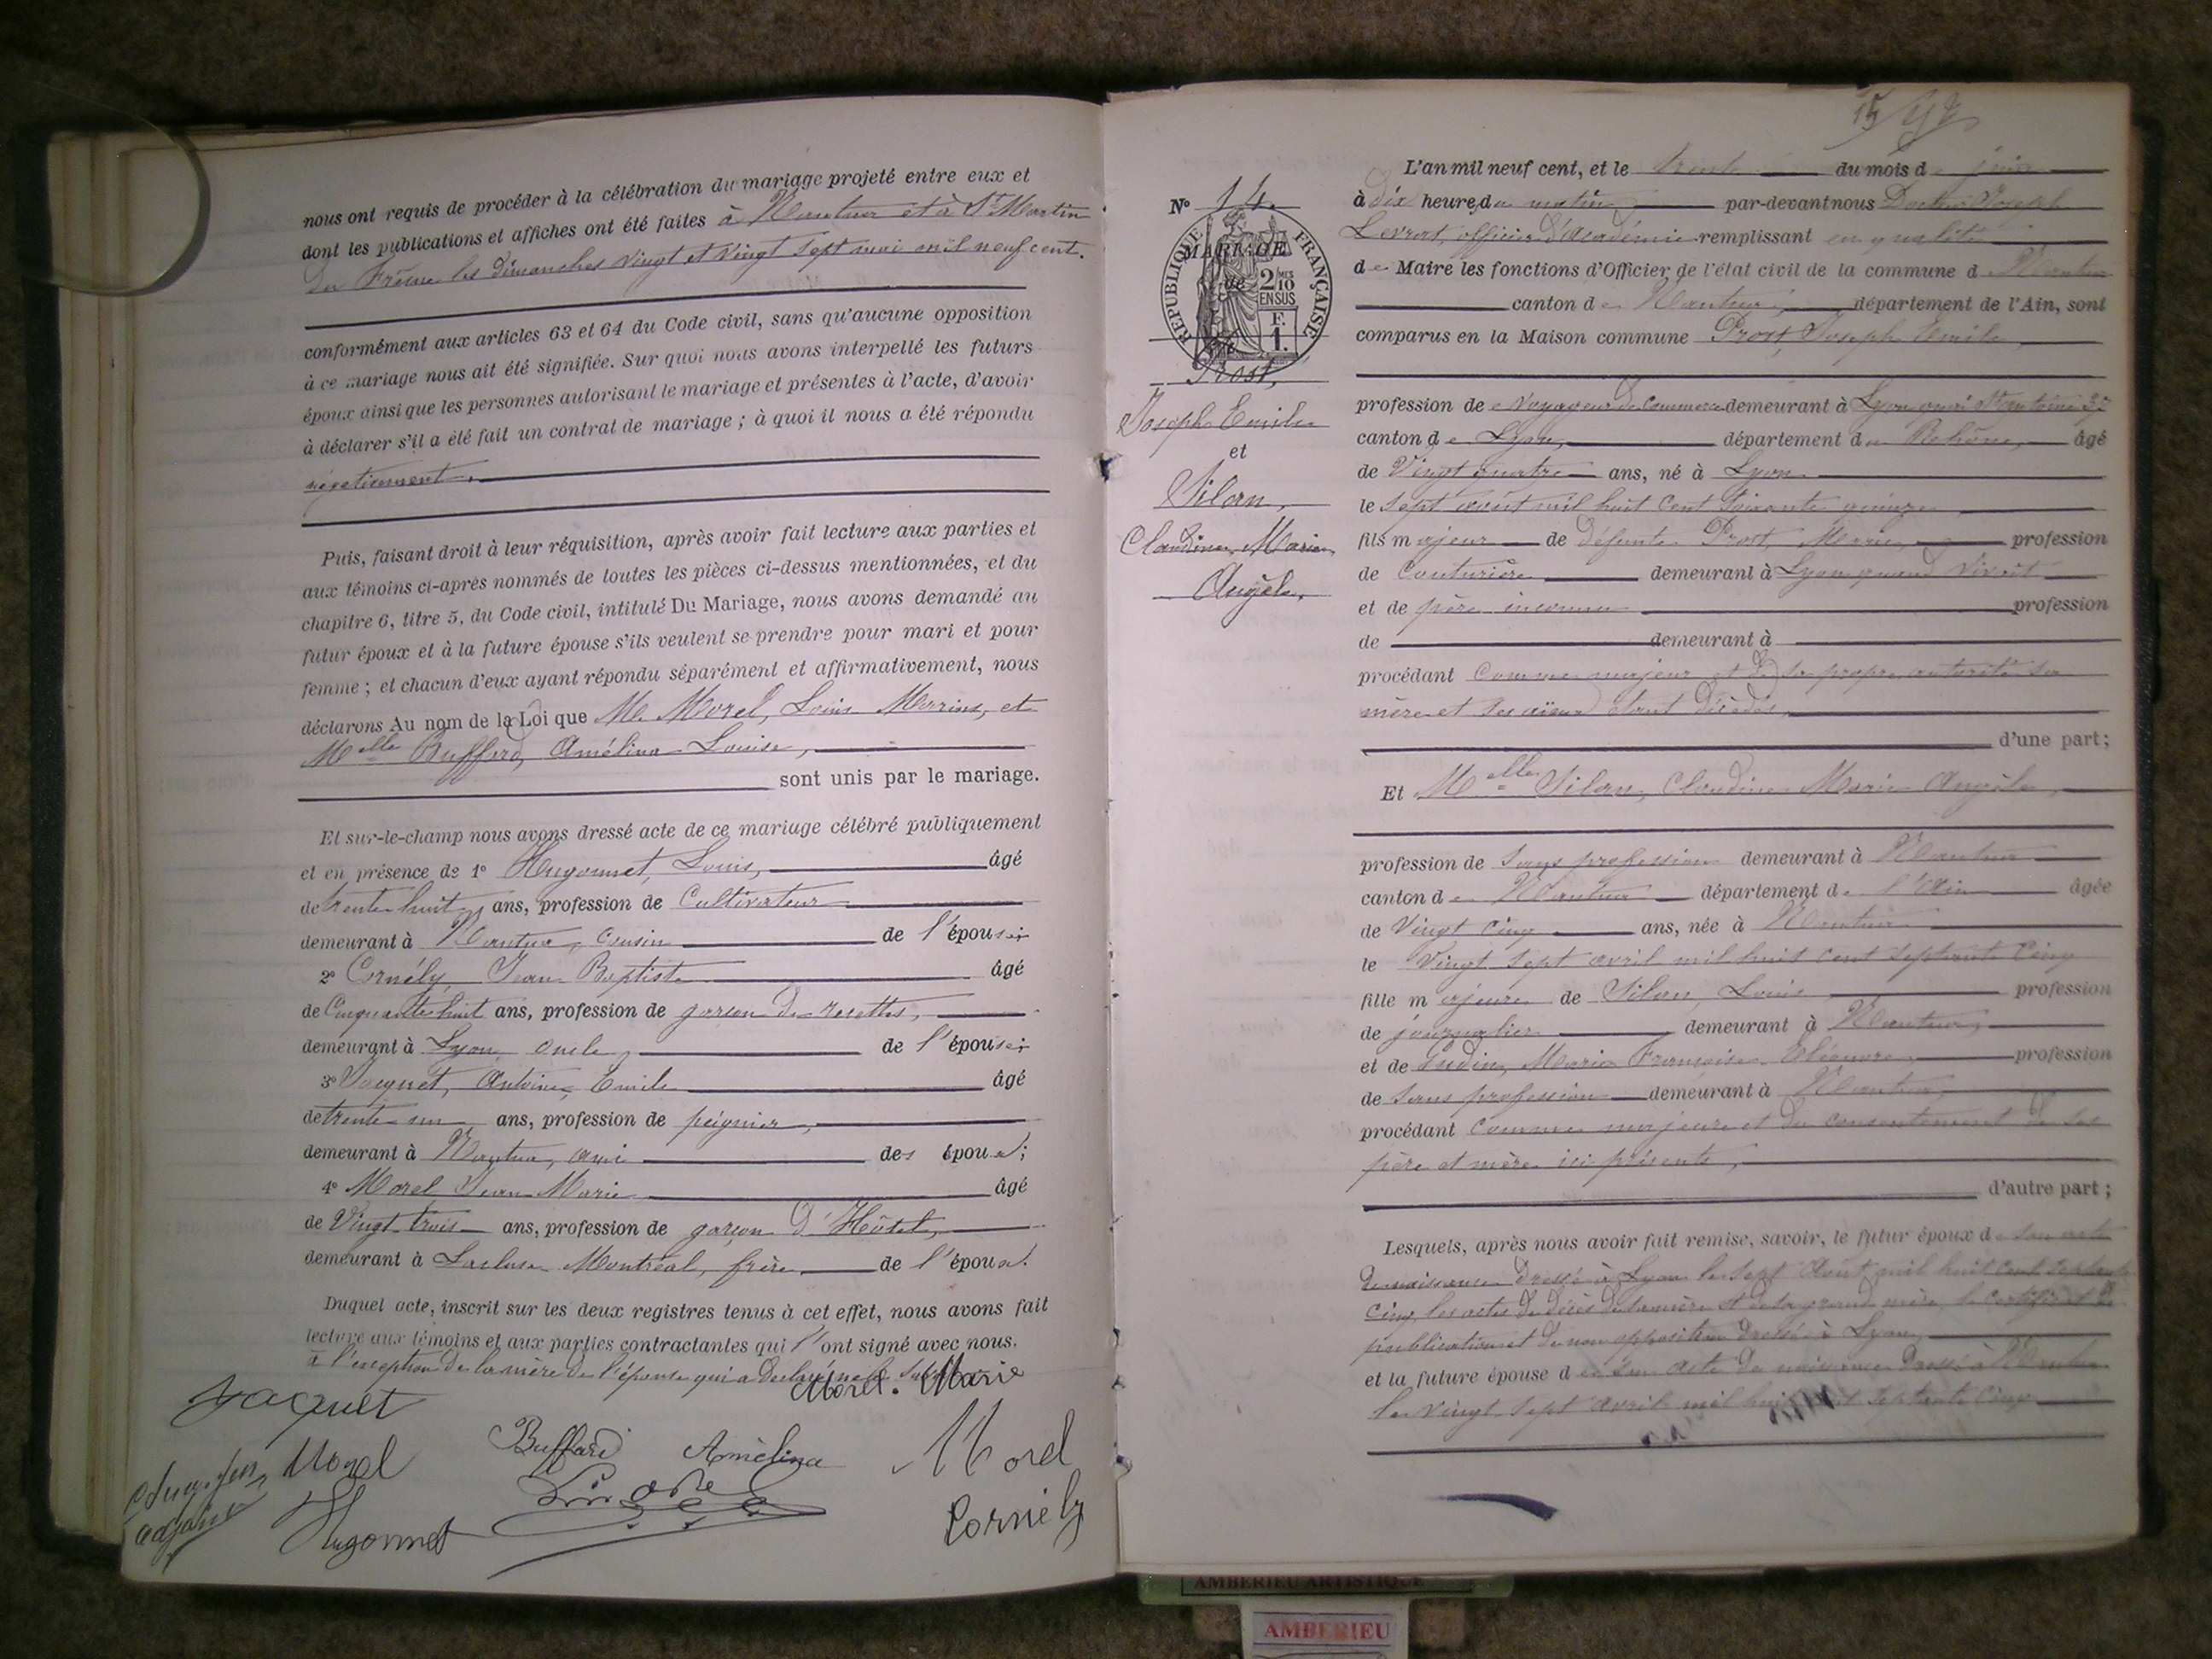 nous ont requis de procéder à la célébration du mariage projeté entre eux et
dont les publications et affiches ont été faites à Nantua et à St Martin
du Frêne les dimanches vingt et vingt sept mai mil neuf cent.
conformément aux articles 63 et 64 du Code civil, sans qu'aucune opposition
à ce mariage nous ait été signifiée. Sur quoi nous avons interpellé les futurs
époux ainsi que les personnes autorisant le mariage et présentes à l'acte, d'avoir
à déclarer s'il a été fait un contrat de mariage ; à quoi il nous a été répondu
négativement.
Puis, faisant droit à leur réquisition, après avoir fait lecture aux parties et
aux témoins ci-après nommés de toutes les pièces ci-dessus mentionnées, et du
chapitre 6, titre 5, du Code civil, intitulé Du Mariage, nous avons demandé au
futur époux et à la future épouse s'ils veulent se prendre pour mari et pour
femme ; et chacun d'eux ayant répondu séparément et affirmativement, nous
déclarons Au nom de la Loi que M. Morel, Louis Marius, et
Melle Buffard, Amélina Louise,
sont unis par le mariage.
Et sur-le-champ nous avons dressé acte de ce mariage célébré publiquement
et en présence de 1° Hugonnet, Louis, âgé
de trente huit ans, profession de Cultivateur
demeurant à Nantua, cousin de l'épouse;
2° Cornély, Jean Baptiste âgé
de Cinquante huit ans, profession de garçon de recettes,
demeurant à Lyon, oncle, de l'épouse;
3° Jacquet, Antoine, Emile âgé
de trente un ans, profession de peignier,
demeurant à Nantua, ami des époux;
4° Morel Jean Marie âgé
de Vingt trois ans, profession de garçon d'Hôtel,
demeurant à Lacluse Montréal, frère de l'époux.
Duquel acte, inscrit sur les deux registres tenus à cet effet, nous avons fait
lecture aux témoins et aux parties contractantes qui l'ont signé avec nous.
à l'exception de la mère de l'épouse qui a déclaré ne le
Morel. Marie
Jacquet
Buffard Amélina
Morel
Morel
adjoint
Hugonnet
Cornély
15
N° 14.
MARIAGE
de
REPUBLIQUE FRANÇAISE
2/10 MES
EN SUS
F.
1.
Prost,
Joseph Emile
et
Silan,
Claudine, Marie,
Angèle,
L'an mil neuf cent, et le trente du mois de juin
à dix heures du matin par-devant nous Docteur Joseph
Levrat, officier d'Académie remplissant en qualité
de Maire les fonctions d'Officier de l'état civil de la commune de Nantua
canton de Nantua, département de l'Ain, sont
comparus en la Maison commune Prost, Joseph Emile
profession de voyageur de Commerce demeurant à Lyon quai St Antoine
canton de Lyon, département du Rhône, âgé
de Vingt quatre ans, né à Lyon
le sept août mil huit cent soixante quinze
fils majeur de défunte Prost, Marie, profession
de Couturière demeurant à Lyon quand vivait
et de père inconnu profession
de demeurant à
procédant comme majeur et de sa propre autorité sa
mère et ses aïeux étant décédés,
d'une part;
Et Melle Silan, Claudine Marie Angèle,
profession de sans profession demeurant à Nantua
canton de Nantua département de l'Ain âgée
de Vingt cinq ans, née à Nantua
le Vingt sept avril mil huit cent septante cinq
fille majeure de Silan, Louis profession
de journalier demeurant à Nantua,
et de Marie Françoise Eléonore, profession
de sans profession demeurant à Nantua,
procédant comme majeure et du consentement de ses
père et mère ici présents,
d'autre part ;
Lesquels, après nous avoir fait remise, savoir, le futur époux de son acte
de naissance dressé à Lyon le sept Août mil huit cent septante
cinq, les actes de décès de sa mère et de sa grand mère, le certificat de
publication et de non opposition dressé à Lyon,
et la future épouse de son acte de naissance dressé à Nantua
le vingt sept avril mil huit cent septante cinq
AMBERIEU ARTISTIQUE
AMBERIEU